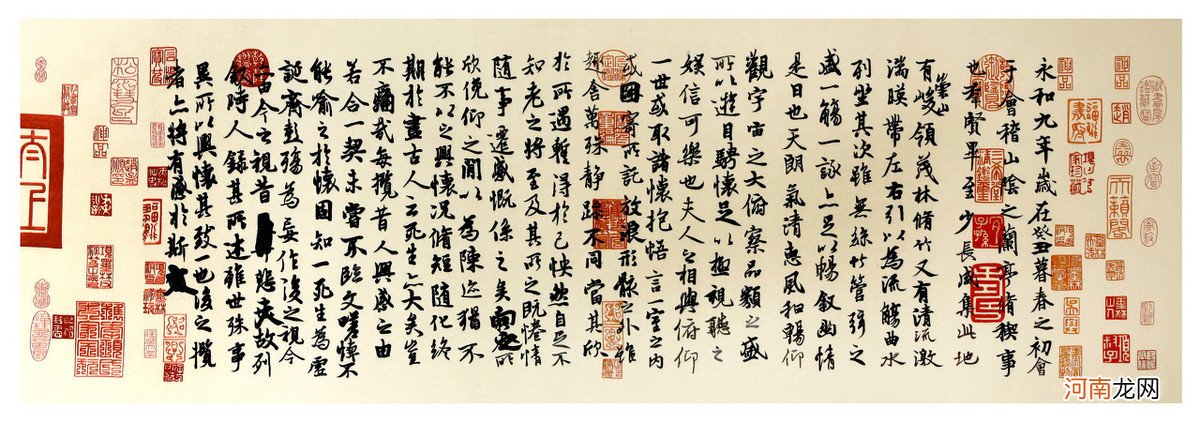 永和九年歲在癸丑暮春之初會
于會稽山陰之蘭亭脩稧事
也群賢畢至少長咸集此地
有崇山峻領茂林脩竹又有清流激
湍暎帶左右引以為流觴曲水
列坐其次雖無絲竹管弦之
盛一觴一詠亦足以暢敘幽情
是日也天朗氣清惠風和暢仰
觀宇宙之大俯察品類之盛
所以遊目騁懷足以極視聽之
娛信可樂也夫人之相與俯仰
一世或取諸懷抱悟言一室之內
或因寄所託放浪形骸之外雖
趣舍萬殊靜躁不同當其欣
於所遇暫得於己怏然自足不
知老之將至及其所之既惓情
隨事遷感慨係之矣向之所
欣俛仰之閒以為陳迹猶不
能不以之興懷況脩短隨化終
期於盡古人云死生亦大矣豈
不痛哉每攬昔人興感之由
若合一契未嘗不臨文嗟悼不
能喻之於懷固知一死生為虛
誕齊彭殤為妄作後之視今
亦由今之視昔悲夫故列
敘時人錄其所述雖世殊事
異所以興懷其致一也後之攬
者亦將有感於斯文
河南龙网